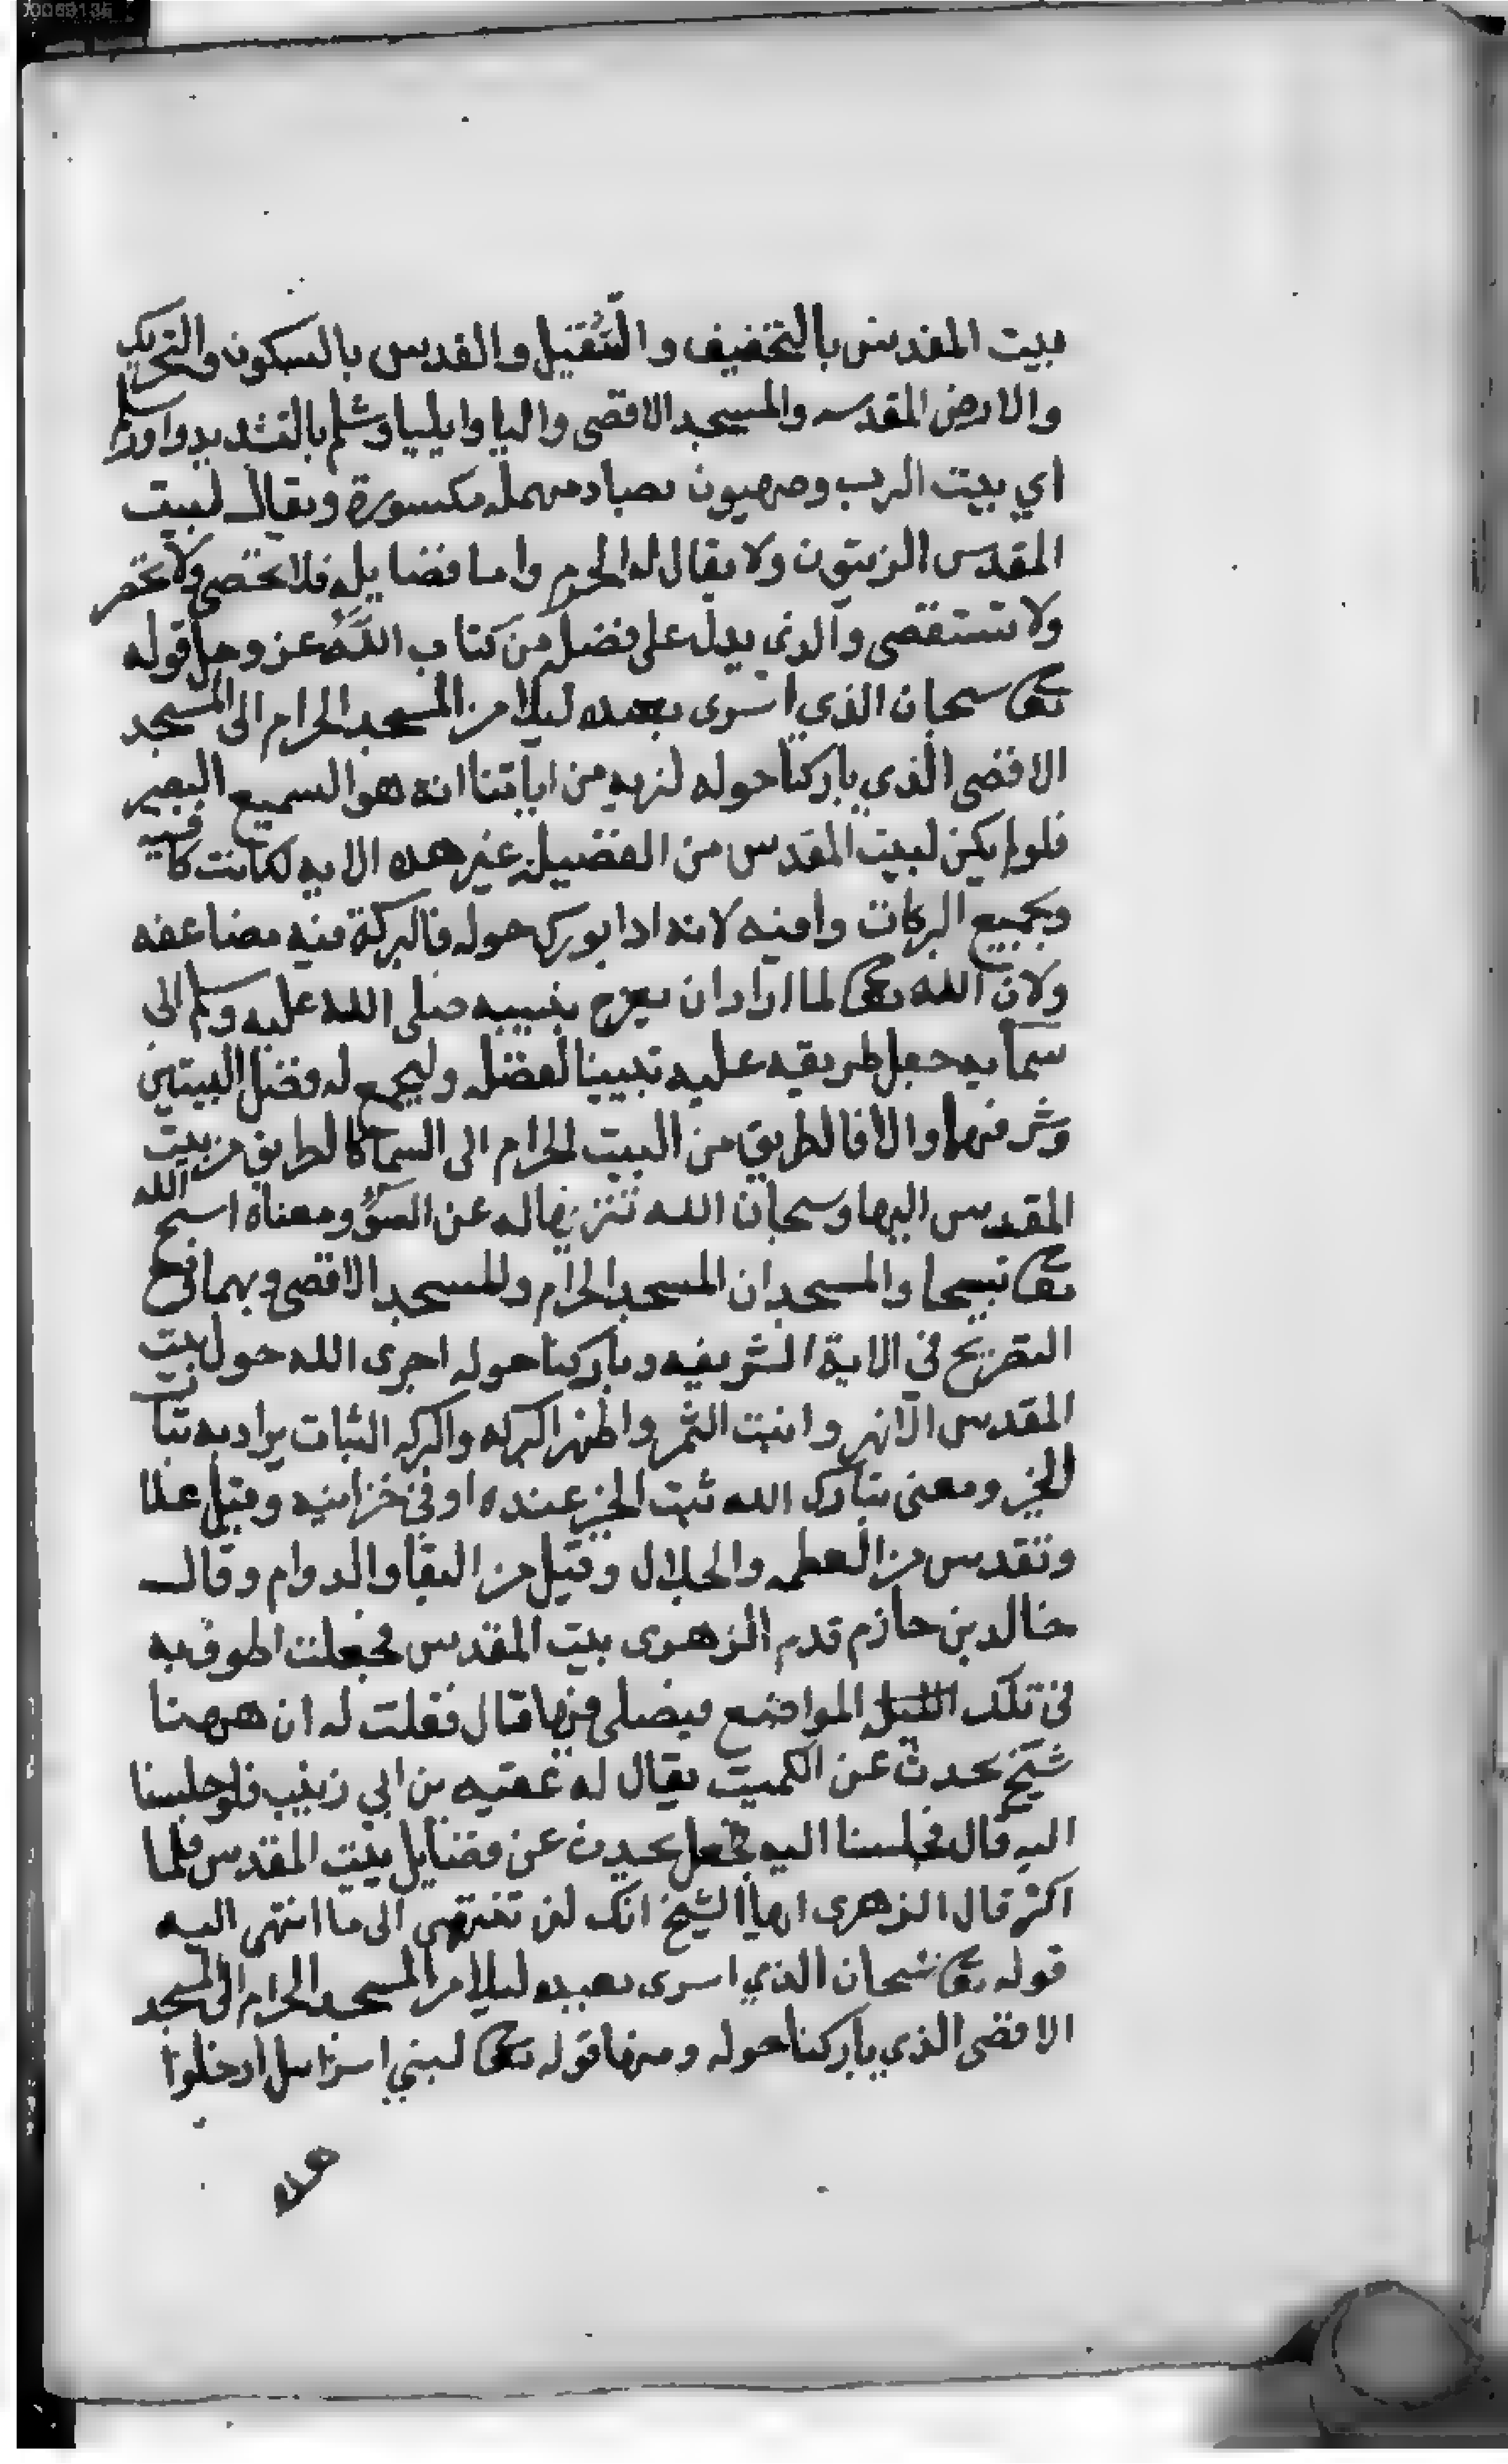 0069135
بيت المقدس بالتخفيف والتثقيل والقدس بالسكون والتحريك
والارض المقدسه والمسجد الاقصى واليا وايليا وشلم بالتشديد واورشلم
اي بيت الرب وصهيون بصاد مهمله مكسورة ويقال لبيت
المقدس الزيتون ولا يقال له الحرم واما فضايله فلا تحصى ولا تحصر
ولا تستقصى والذي يدل على فضله من كتاب الله عز وجل قوله
تعالى سبحان الذي اسرى بعبده ليلا من المسجد الحرام الى المسجد
الاقصى الذي باركنا حوله لنريه من اياتنا انه هو السميع البصير
فلو لم يكن لبيت المقدس من الفضيله غير هذه الايه لكانت كافيه
وبجميع البركات وافيه لانه اذا بورك حوله فالبركة فيه مضاعفه
ولان الله تعالى لما اراد ان يعرج بنبيه صلى الله عليه وسلم الى
سمايه جعل طريقه عليه تبيينا لفضله وليجمع له فضل البيتين
وشرفهما والا فالطريق من البيت الحرام الى السما كالطريق من بيت
المقدس اليها وسبحان الله تنزيها له عن السوء ومعناه اسبح الله
تعالى تسبيحا والمسجدان المسجد الحرام والمسجد الاقصى وبهما وقع
التصريح في الاية الشريفه وباركنا حوله اجرى الله حول بيت
المقدس الانهر وانبت الثمر واظهر البركه والبركه الثبات يراد به ثبات
الخير ومعنى تبارك الله ثبت الخير عنده او في خزاينه وقيل علا
وتقدس من العظمه والجلال وقيل من البقا والدوام وقال
خالد بن حازم قدم الزهرى بيت المقدس فجعلت اطوف به
في تلك الليل المواضع فيصلى فيها قال فقلت له ان ههنا
شيخ يحدث عن الكميت يقال له عقبه بن ابي زينب فلو جلسنا
اليه قال فجلسنا اليه فجعل يحدث عن فضايل بيت المقدس فلما
اكثر قال الزهرى ايها الشيخ انك لن تنتهى الى ما انتهى اليه
قوله تعالى سبحان الذي اسرى بعبده ليلا من المسجد الحرام الى المسجد
الاقصى الذي باركنا حوله ومنها قوله تعالى لبني اسرايل ادخلوا
هذه